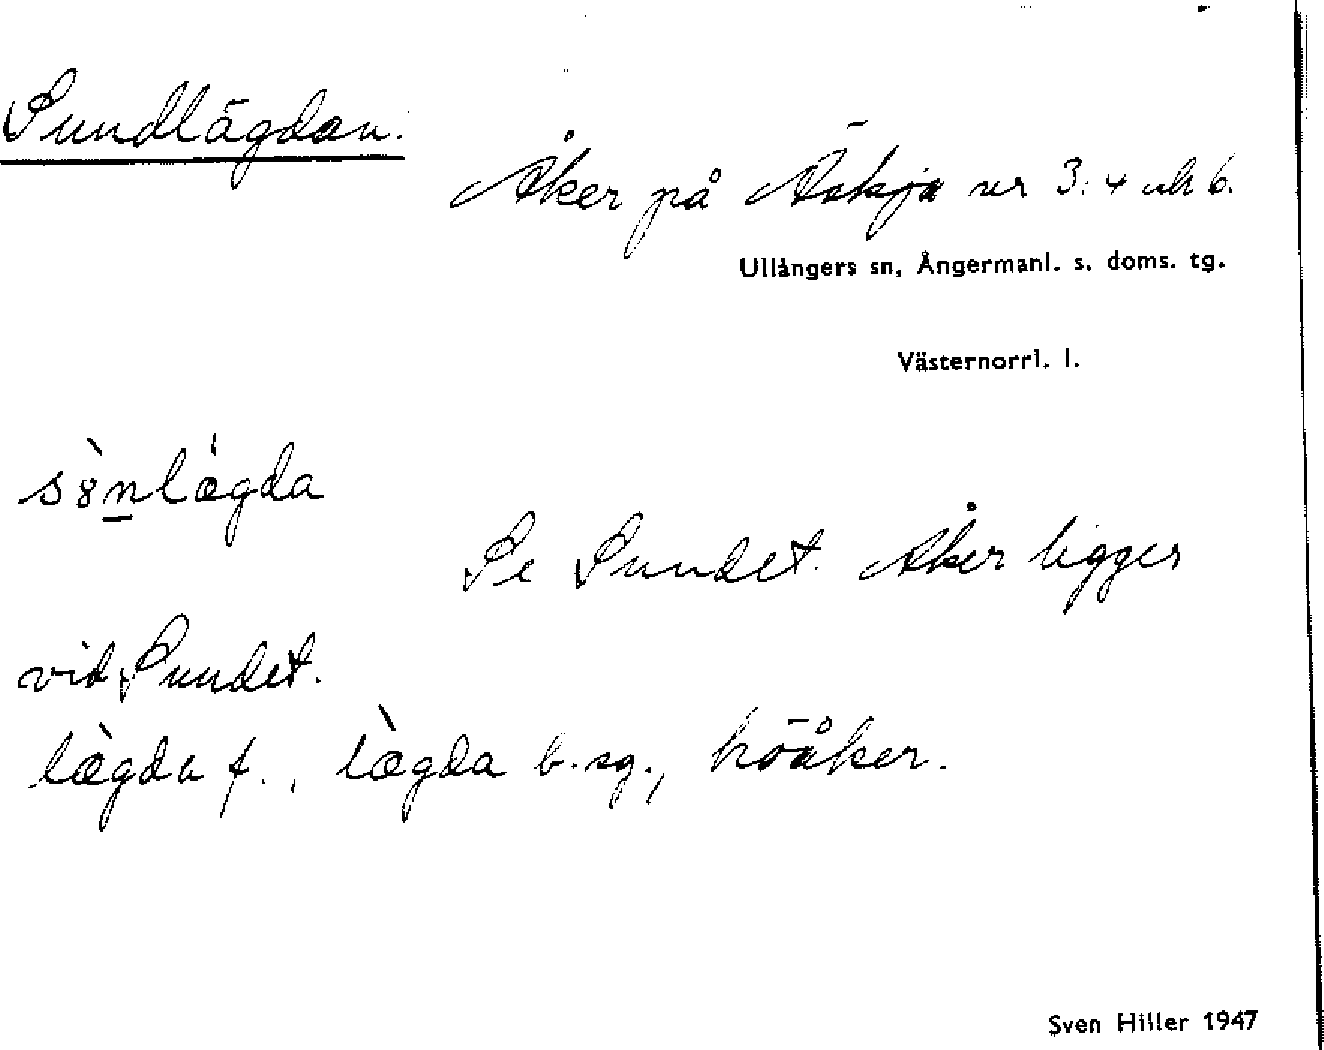 Sundlägdan.
Åker på Äskja nr 3, 4 och 6.
Ullångers sn, Ångermanl. s. doms. tg.
Västernorrl. l.
sònlǽgda
Se Sundet. Åker ligger
vid Sundet.
lægda f., lægda b.sg., höåker.
Sven Hiller 1947